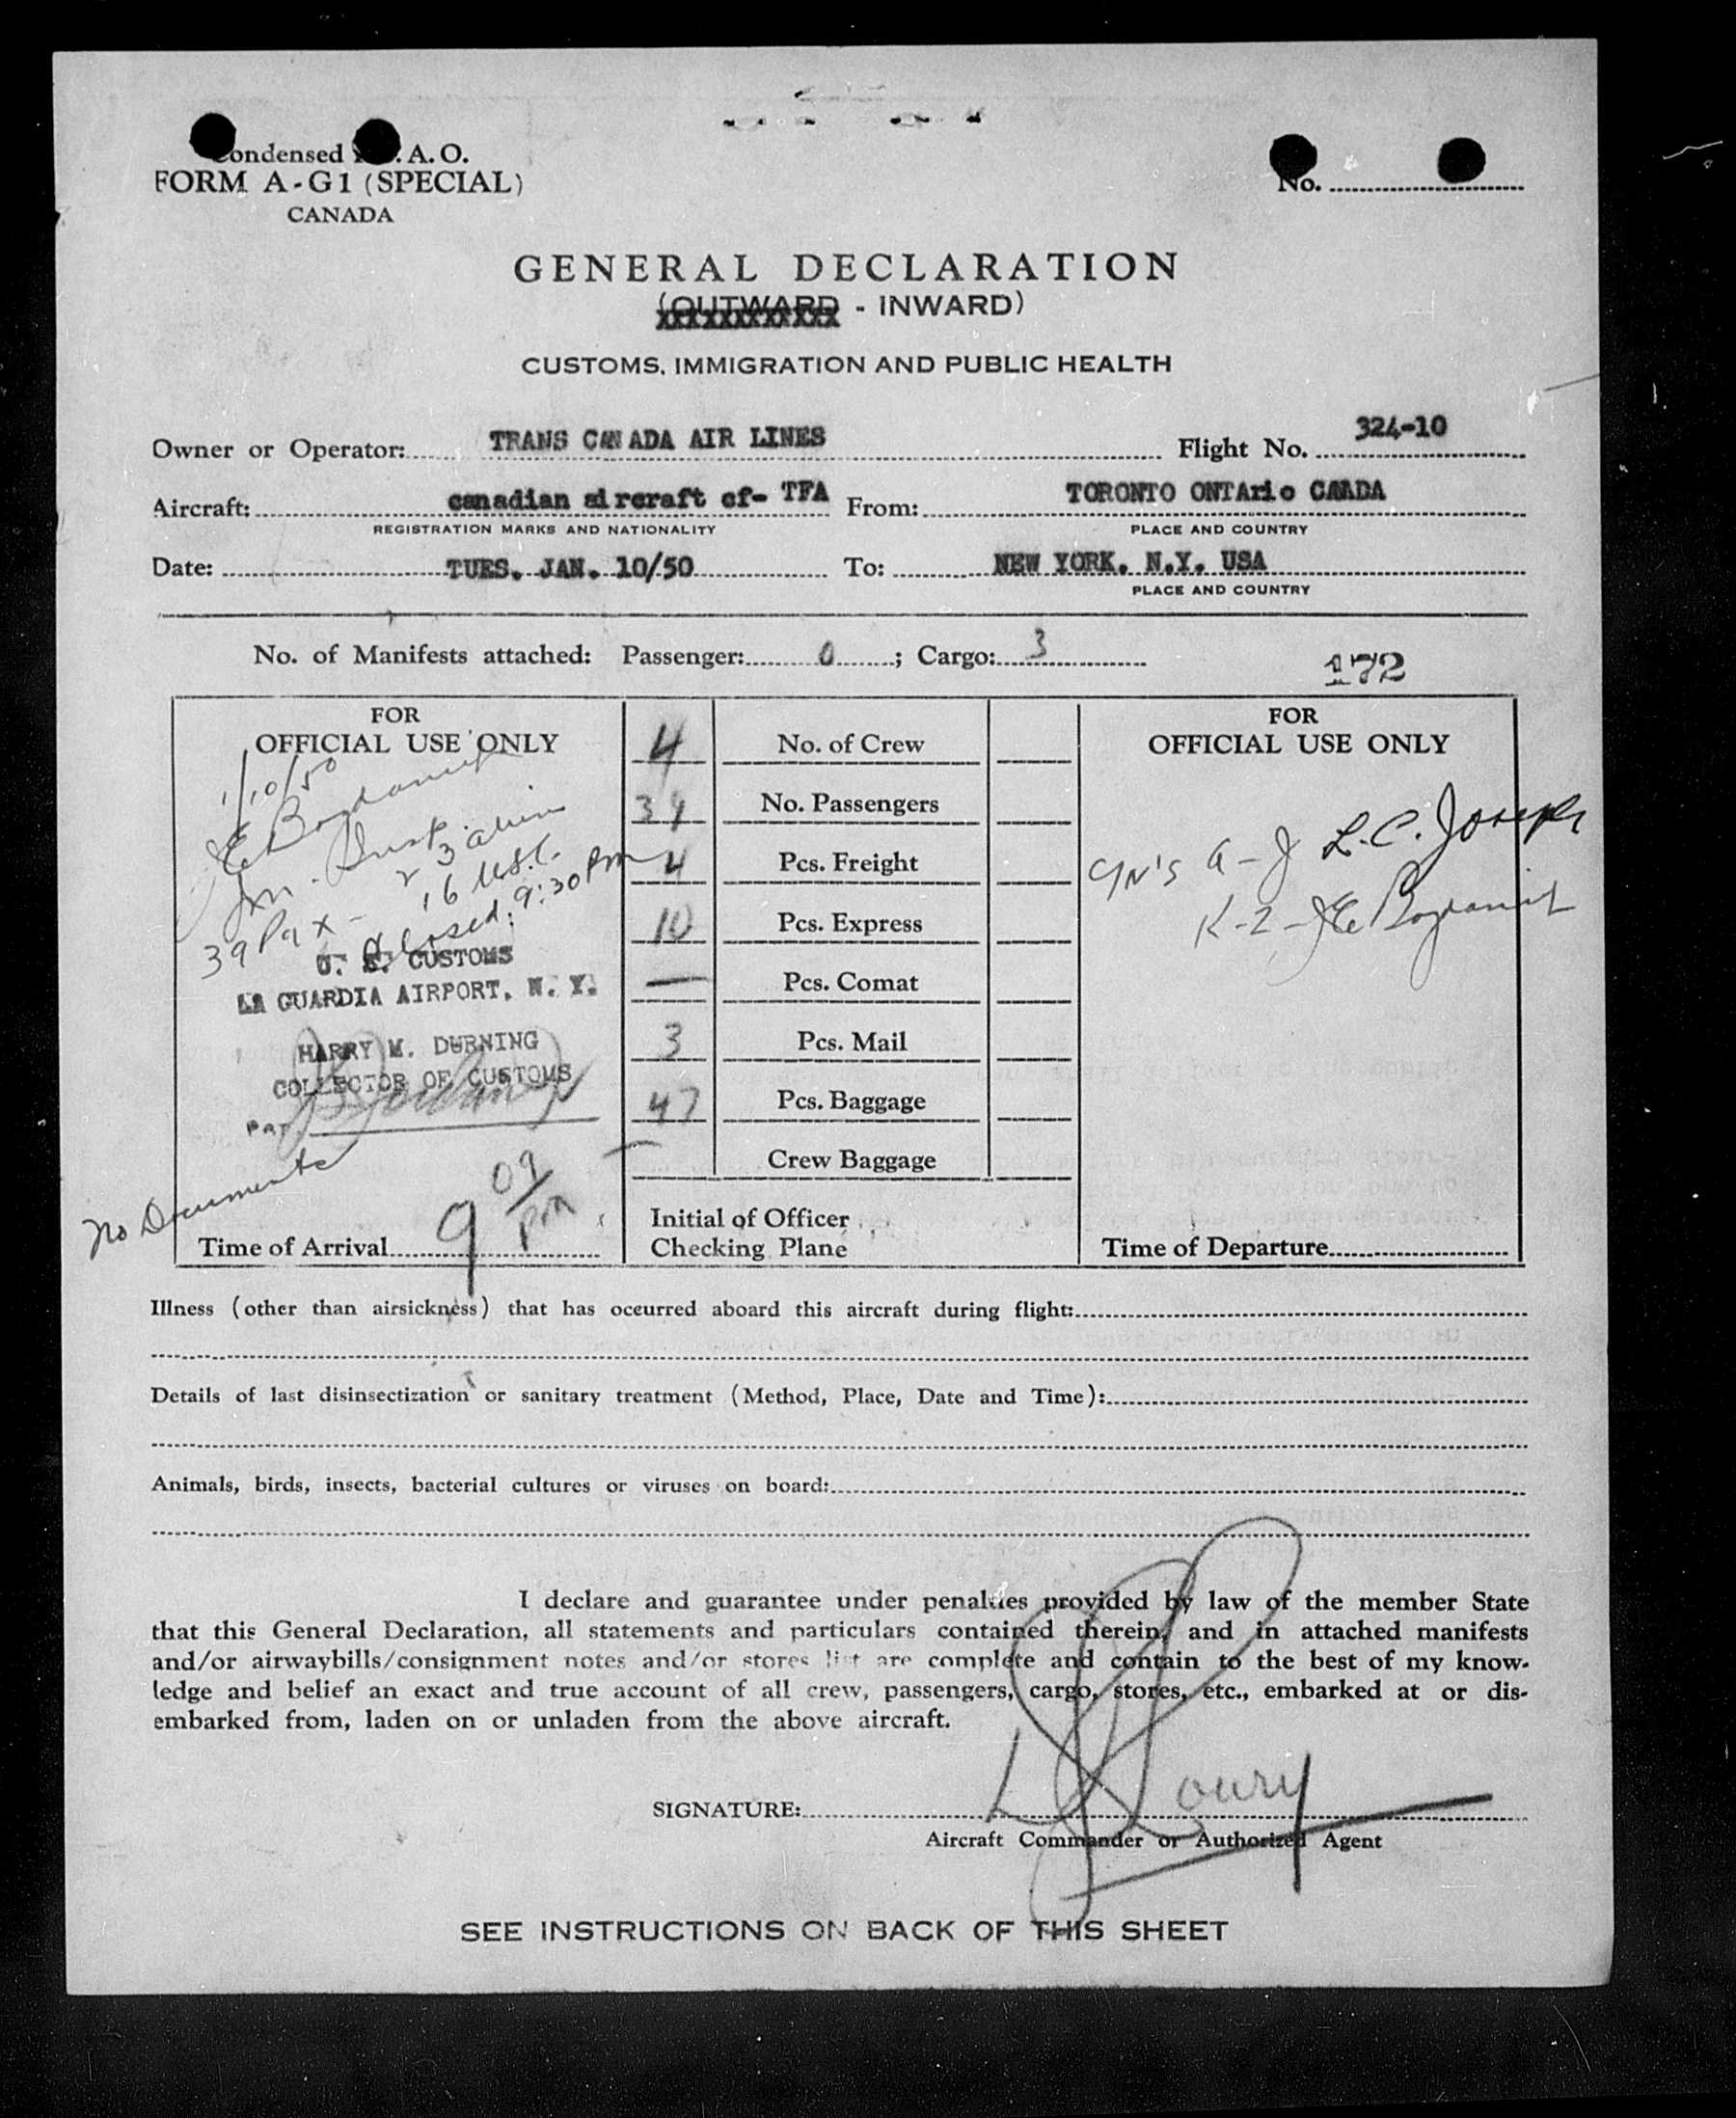 Condensed I.C.A.O.
FORM A-G1 (SPECIAL)
CANADA
No.
GENERAL DECLARATION
(OUTWARD - INWARD)
CUSTOMS, IMMIGRATION AND PUBLIC HEALTH
Owner or Operator: TRANS CANADA AIR LINES Flight No. 324-10
Aircraft: canadian aircraft cf- TFA From: TORONTO ONTArio CAADA
REGISTRATION MARKS AND NATIONALITY PLACE AND COUNTRY
Date: TUES. JAN. 10/50 To: NEW YORK. N.Y. USA
PLACE AND COUNTRY
No. of Manifests attached: Passenger: 0 ; Cargo: 3
172
FOR
OFFICIAL USE ONLY
1/10/50
23 alien
16 U.S.C.
39 Pax -
Closed: 9:30 Pm
U. S. CUSTOMS
LA GUARDIA AIRPORT, N. Y.
HARRY M. DURNING
COLLECTOR OF CUSTOMS
Per
No Documents
Time of Arrival 9 09 pm
4 No. of Crew
39 No. Passengers
4 Pcs. Freight
10 Pcs. Express
— Pcs. Comat
3 Pcs. Mail
47 Pcs. Baggage
— Crew Baggage
Initial of Officer
Checking Plane
FOR
OFFICIAL USE ONLY
A - J L.C. Joseph
K-Z - JE Bogdanich
Time of Departure
Illness (other than airsickness) that has occurred aboard this aircraft during flight:
Details of last disinsectization or sanitary treatment (Method, Place, Date and Time):
Animals, birds, insects, bacterial cultures or viruses on board:
I declare and guarantee under penalties provided by law of the member State
that this General Declaration, all statements and particulars contained therein, and in attached manifests
and/or airwaybills/consignment notes and/or stores list are complete and contain to the best of my know-
ledge and belief an exact and true account of all crew, passengers, cargo, stores, etc., embarked at or dis-
embarked from, laden on or unladen from the above aircraft.
SIGNATURE:
Aircraft Commander or Authorized Agent
SEE INSTRUCTIONS ON BACK OF THIS SHEET